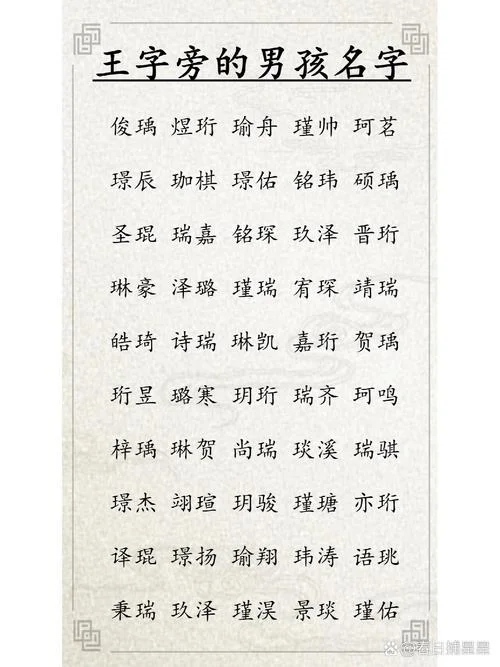 王字旁的男孩名字
俊瑀 煜珩 瑜舟 瑾帅 珂茗
璟辰 珈棋 璟佑 铭玮 硕瑀
圣琨 瑞嘉 铭琛 玖泽 晋珩
琳豪 泽璐 瑾瑞 宥琛 靖瑞
皓琦 诗瑞 琳凯 嘉珩 贺瑀
珩昱 璐寒 玥珩 瑞齐 珂鸣
梓瑀 琳贺 尚瑞 琰溪 瑞骐
璟杰 翊瑄 玥骏 瑾瑭 亦珩
译琨 璟扬 瑜翔 玮涛 语珧
秉瑞 玖泽 瑾淏 景琰 瑾佑
@春日捕星星